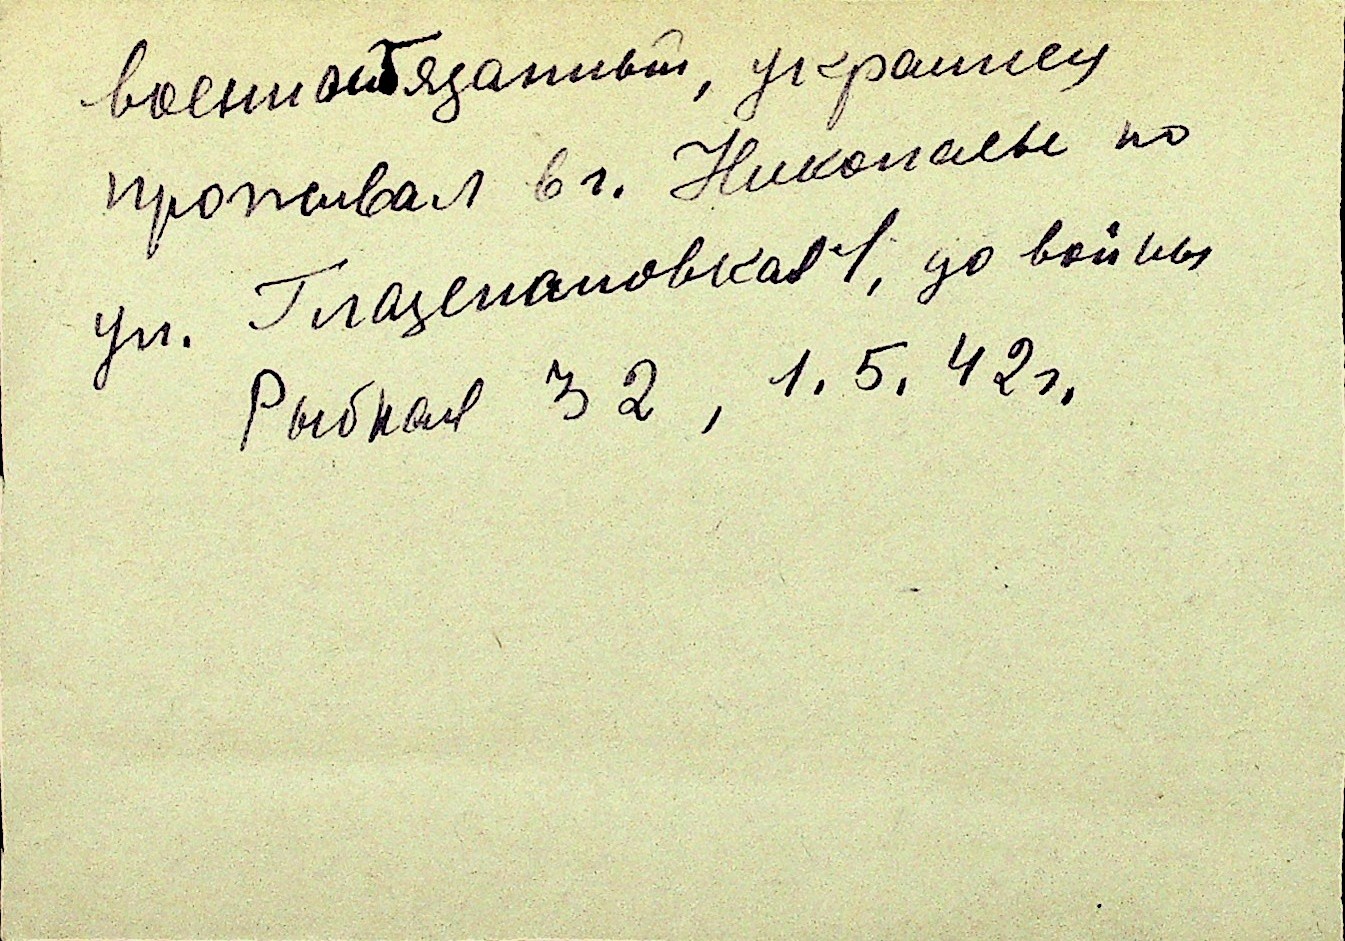 военнообязанный, украинец
проживал в г. Никополье по
ул. Глазенаповкая 1, до войны
Рыбная 32, 1.5.42г.